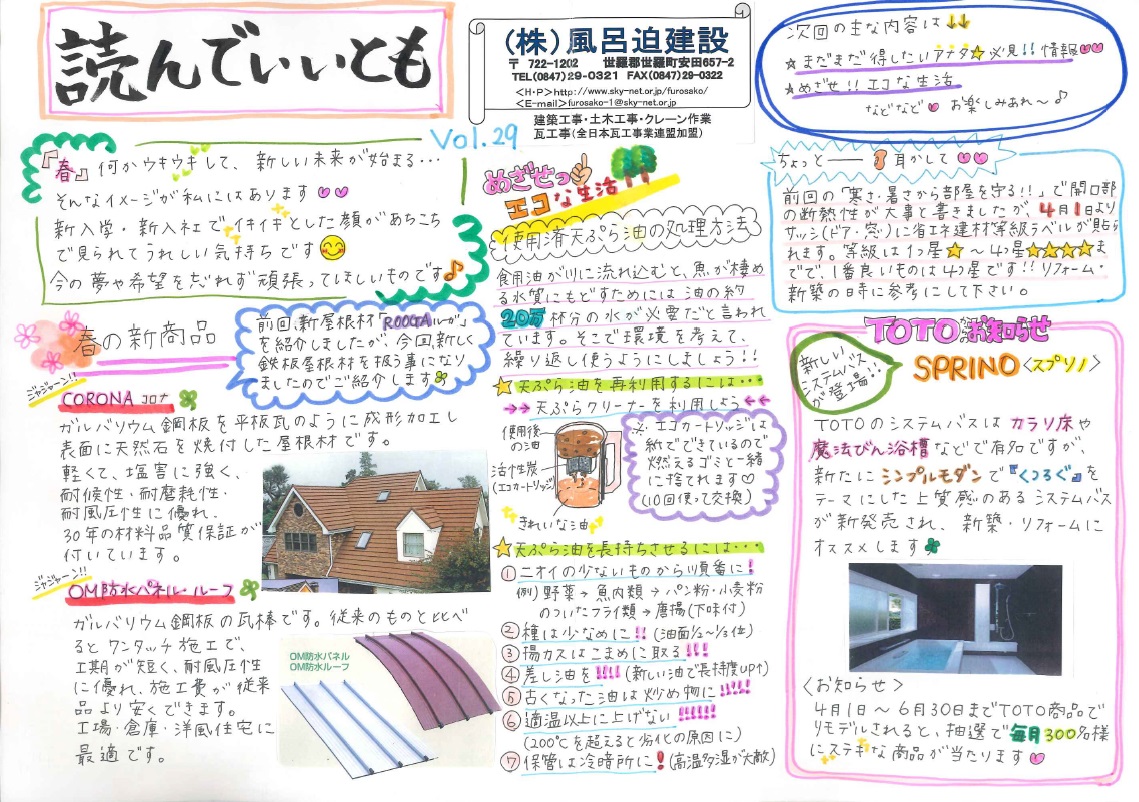 読んでいいとも
(株)風呂迫建設
〒 722-1202 世羅郡世羅町安田657-2
TEL(0847)29-0321 FAX(0847)29-0322
<H・P>http://www.sky-net.or.jp/furosako/
<E-mail>furosako-1@sky-net.or.jp
建築工事・土木工事・クレーン作業
瓦工事(全日本瓦工事業連盟加盟)
Vol.29
次回の主な内容は↓↓
★まだまだ得したいアナタ☆必見!!情報
★めざせ!!エコな生活
などなど お楽しみあれ〜♪
『春』何かウキウキして、新しい未来が始まる…
そんなイメージが私にはあります
新入学・新入社でイキイキとした顔があちこち
で見られてうれしい気持ちです
今の夢や希望を忘れず頑張ってほしいものです♪
春の新商品
前回、新屋根材「ROOGAルーガ」
を紹介しましたが、今回新しく
鉄板屋根材を扱う事になり
ましたのでご紹介します
ジャジャーン!!
CORONA コロナ
ガルバリウム鋼板を平板瓦のように成形加工し
表面に天然石を焼付した屋根材です。
軽くて、塩害に強く、
耐候性・耐磨耗性・
耐風圧性に優れ、
30年の材料品質保証が
付いています。
ジャジャーン!!
OM防水パネル・ルーフ
ガルバリウム鋼板の瓦棒です。従来のものと比べ
るとワンタッチ施工で、
工期が短く、耐風圧性
に優れ、施工費が従来
品より安くできます。
工場・倉庫・洋風住宅に
最適です。
OM防水パネル
OM防水ルーフ
めざせっ
エコな生活
使用済天ぷら油の処理方法
食用油が川に流れ込むと、魚が棲め
る水質にもどすためには油の約
20万杯分の水が必要だと言われ
ています。そこで環境を考えて、
繰り返し使うようにしましょう!!
☆天ぷら油を再利用するには…
→→天ぷらクリーナーを利用しよう←←
使用後
の油
活性炭
(エコカートリッジ)
きれいな油
※エコカートリッジは
紙でできているので
燃えるゴミと一緒
に捨てれます♡
(10回使って交換)
☆天ぷら油を長持ちさせるには…
① ニオイの少ないものから順番に!
例) 野菜→魚肉類→パン粉・小麦粉
のついたフライ類→唐揚(下味付)
② 種は少なめに!! (油面1/2〜1/3位)
③ 揚カスはこまめに取る!!!
④ 差し油を!!!! (新しい油で長持度UP↑)
⑤ 古くなった油は炒め物に!!!!!
⑥ 適温以上に上げない!!!!!!
(200℃を超えると劣化の原因に)
⑦ 保管は冷暗所に! (高温多湿が大敵)
ちょっと――耳かして
前回の「寒さ・暑さから部屋を守る!!」で開口部
の断熱性が大事と書きましたが、4月1日より
サッシ(ドア・窓)に省エネ建材等級ラベルが貼ら
れます。等級は1つ星☆〜4つ星☆☆☆☆ま
でで、1番良いものは4つ星です!!リフォーム・
新築の時に参考にして下さい。
TOTOからのお知らせ
新しい
システムバス
が登場!!
SPRINO<スプリノ>
TOTOのシステムバスはカラリ床や
魔法びん浴槽などで有名ですが、
新たにシンプルモダンで『くつろぐ』を
テーマにした上質感のあるシステムバス
が新発売され、新築・リフォームに
オススメします
<お知らせ>
4月1日〜6月30日までTOTO商品で
リモデルされると、抽選で毎月300名様
にステキな商品が当たります